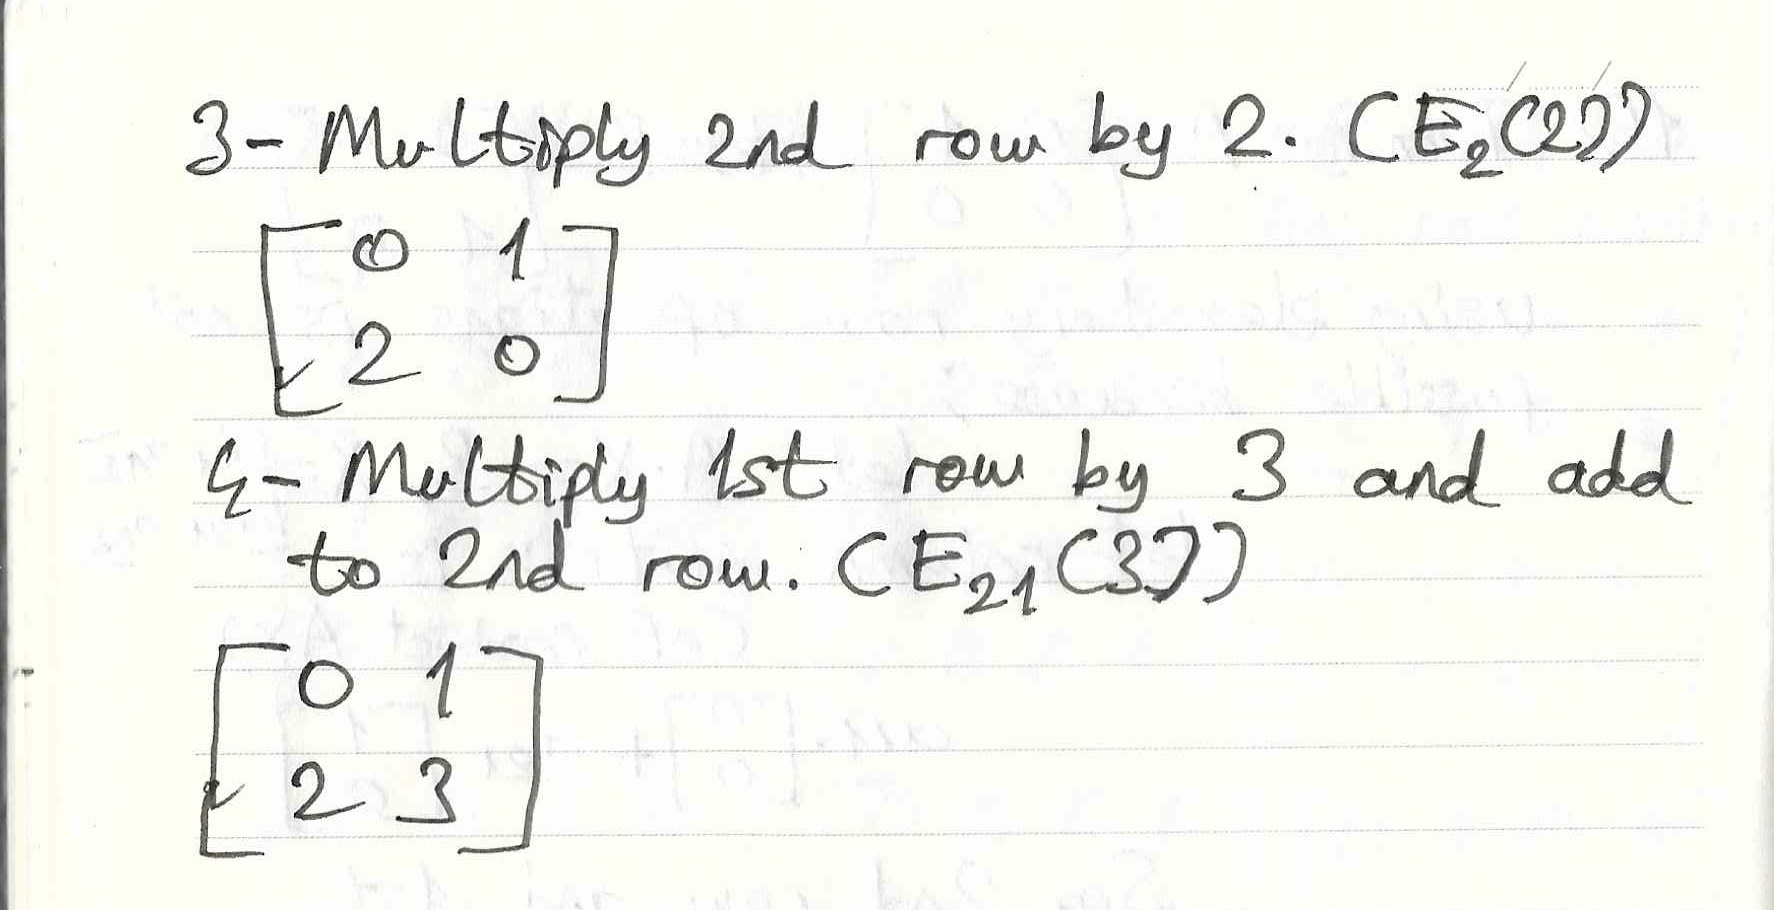 3- Multiply 2nd row by 2. (E₂(2))
0 1
2 0
4- Multiply 1st row by 3 and add
to 2nd row. (E₂₁(3))
0 1
2 3